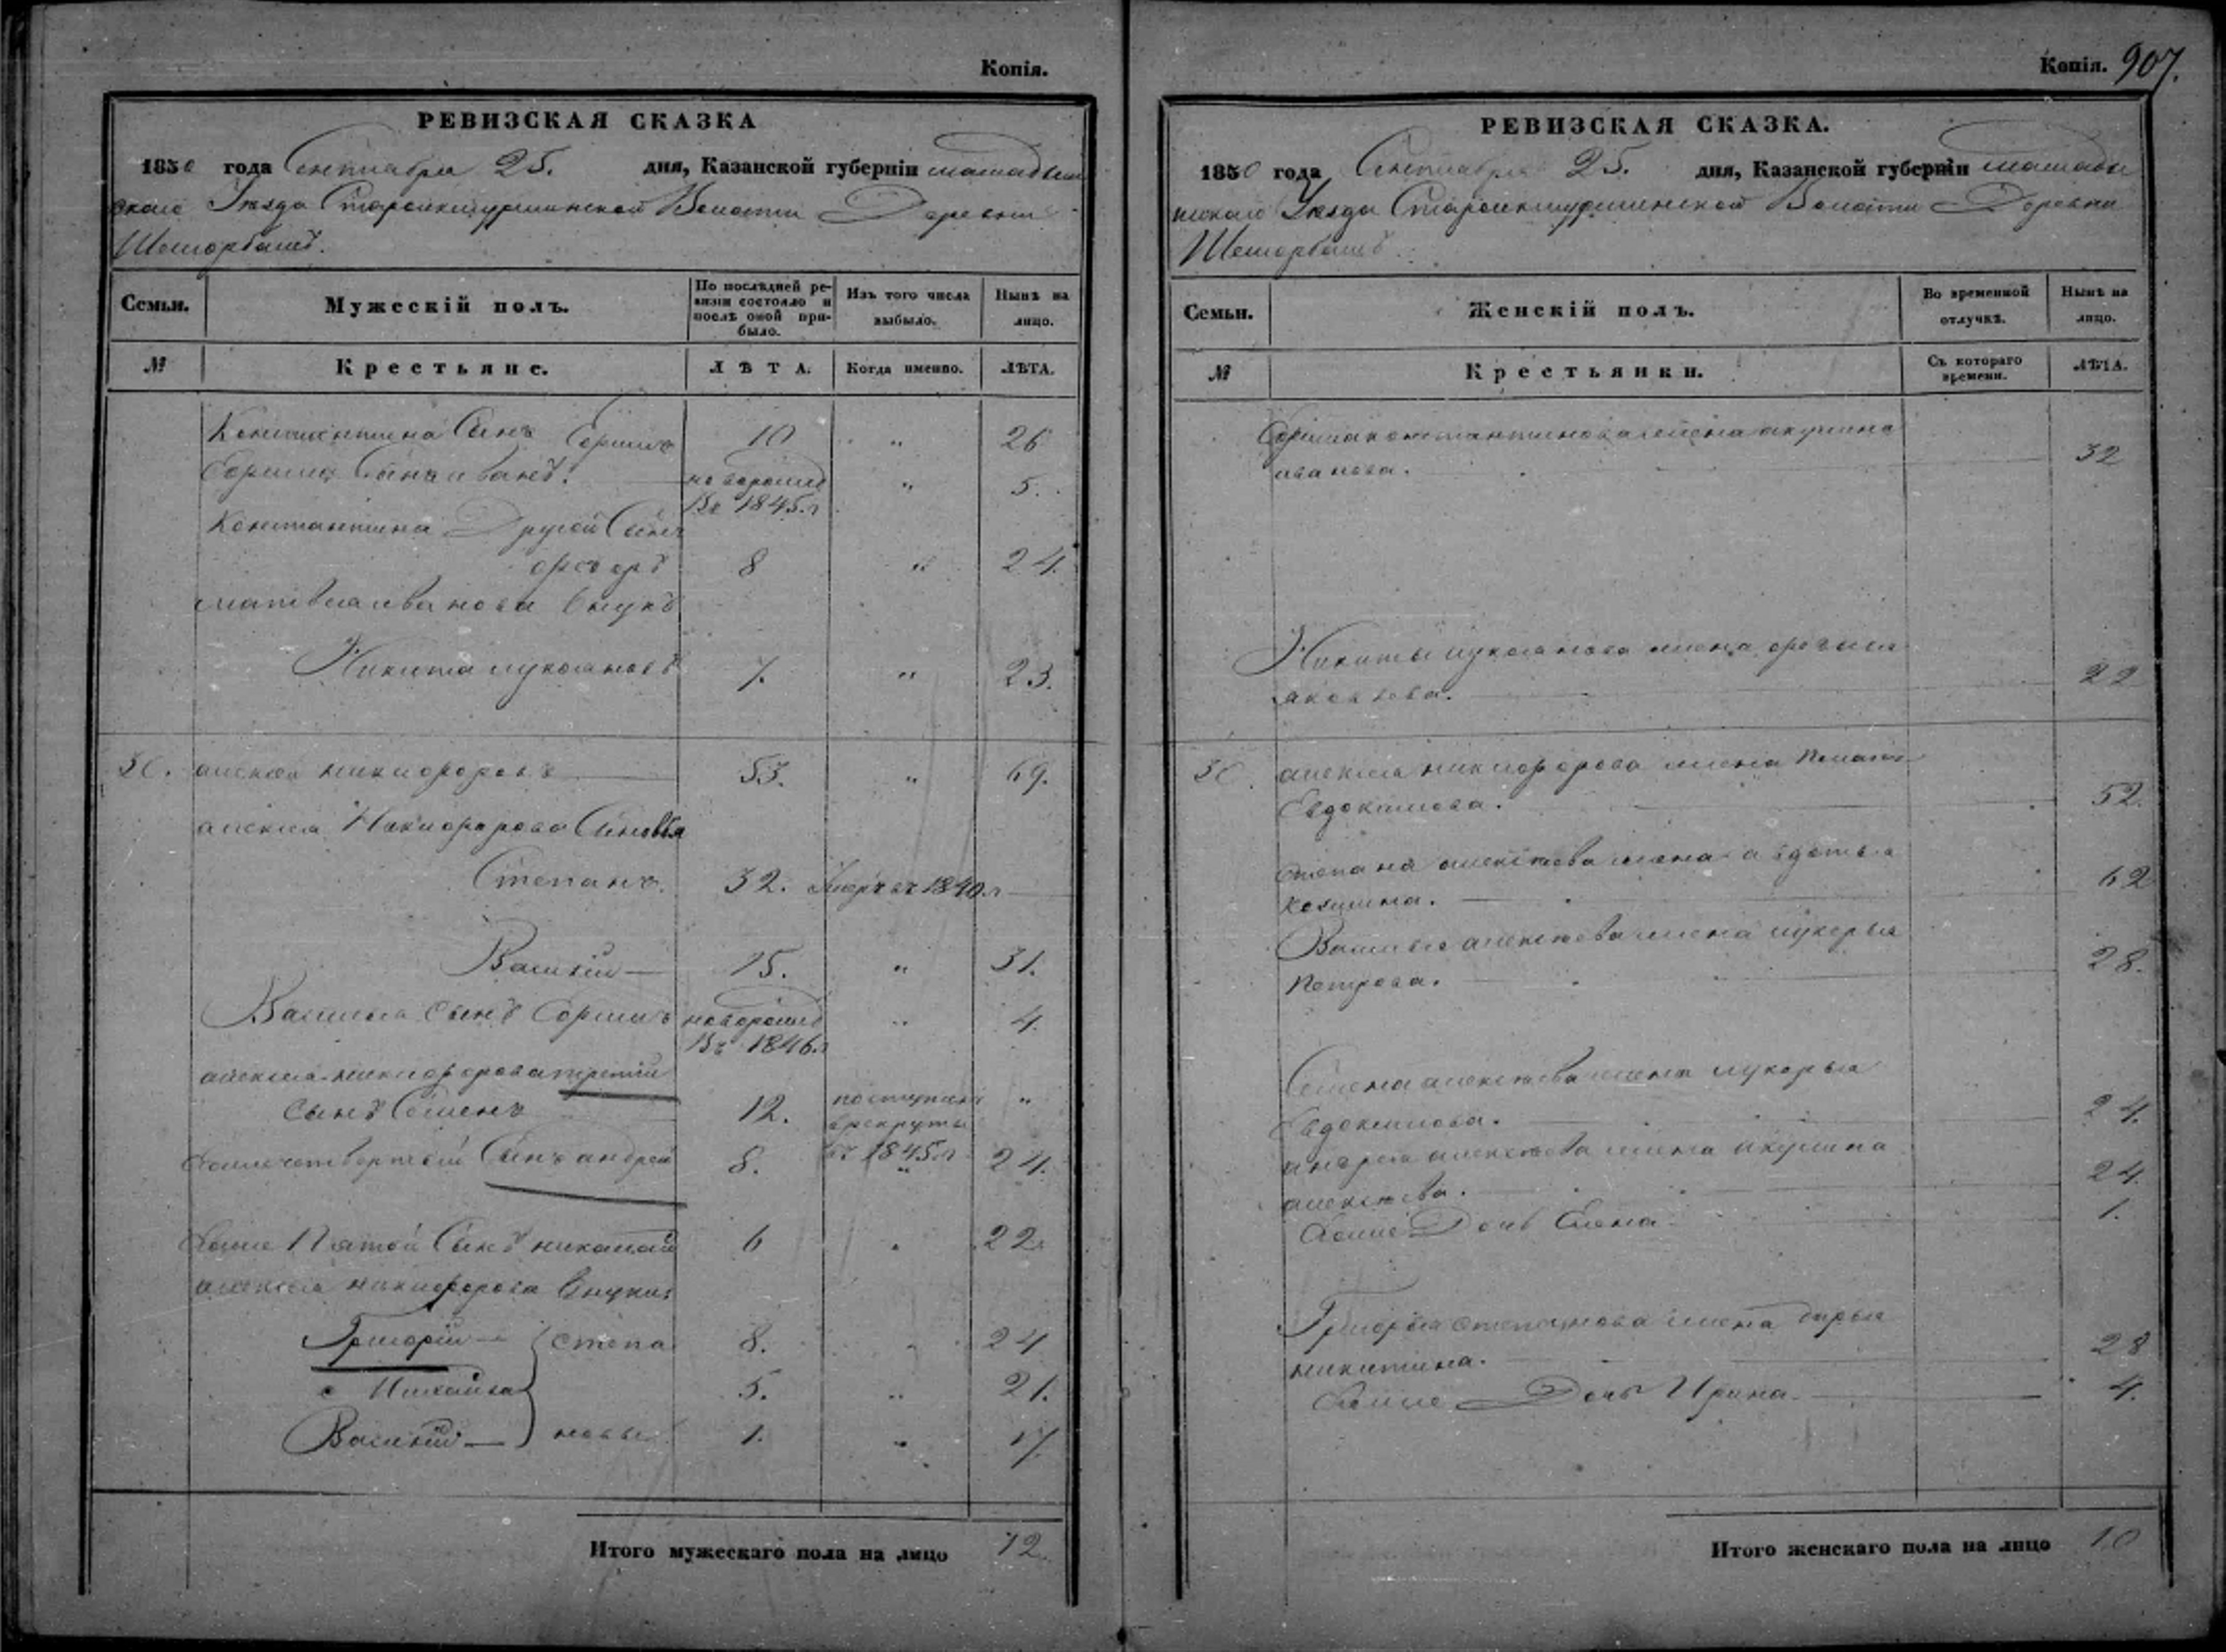 Копія.
РЕВИЗСКАЯ СКАЗКА
1850 года Сентября 25. дня, Казанской губерніи мамадыш
скаго Уѣзда Волости Деревни
Шеморбашъ.
Семьи.
Мужескій полъ.
По послѣдней ре-
визіи состояло и
послѣ оной при-
было.
Изъ того числа
выбыло.
Нынѣ на
лицо.
№
Крестьяне.
ЛѢТА.
Когда именно.
ЛѢТА.
Константина Сынъ 10 " 26
Сынъ иванъ. новорожд " 5.
Въ 1845.г
Константина Другой Сынъ
8 " 24.
матвея иванова внукъ
Никита лукояновъ 7. " 23.
30. алексѣй никифоровъ 53. " 69.
алексея Никифорова Сыновья
Степанъ. 32. Умеръ въ 1840.г
Василій 15. " 31.
Василья сынъ новорожд " 4.
Въ 1846.г
алексея никифорова третий
сынъ Семенъ 12. поступилъ "
врекруты
въ 1845.г
Ево же четвертый Сынъ андрей 8. " 24.
Ево же Пятой Сынъ николай 6 " 22.
алексея никифорова внуки
Григорій Степа 8. " 24
Михайла 5. " 21.
Василій новы 1. " 17.
Итого мужескаго пола на лицо 12.
Копія. 907.
РЕВИЗСКАЯ СКАЗКА.
1850 года Сентября 25. дня, Казанской губерніи мамады
шскаго Уѣзда Волости Деревни
Шеморбашъ
Семьи.
Женскій полъ.
Во временной
отлучкѣ.
Нынѣ на
лицо.
№
Крестьянки.
Съ котораго
времени.
ЛѢТА.
константинова жена акулина
иванова. 32
Никиты лукоянова жена
яковлева. 22
30. алексея никифорова жена
Евдокимова. 52.
Степана алексѣева жена авдотья
козмина. 62
Василья алексѣева жена лукерья
Петрова. 28.
Семена алексѣева жена лукерья
Евдокимова. 24.
андрея алексѣева жена акулина
алексѣева. 24.
Ево же Дочь Елена 1.
Григорья степанова жена дарья
никитина. 28
Ево же Дочь Ирина 4.
Итого женскаго пола на лицо 10